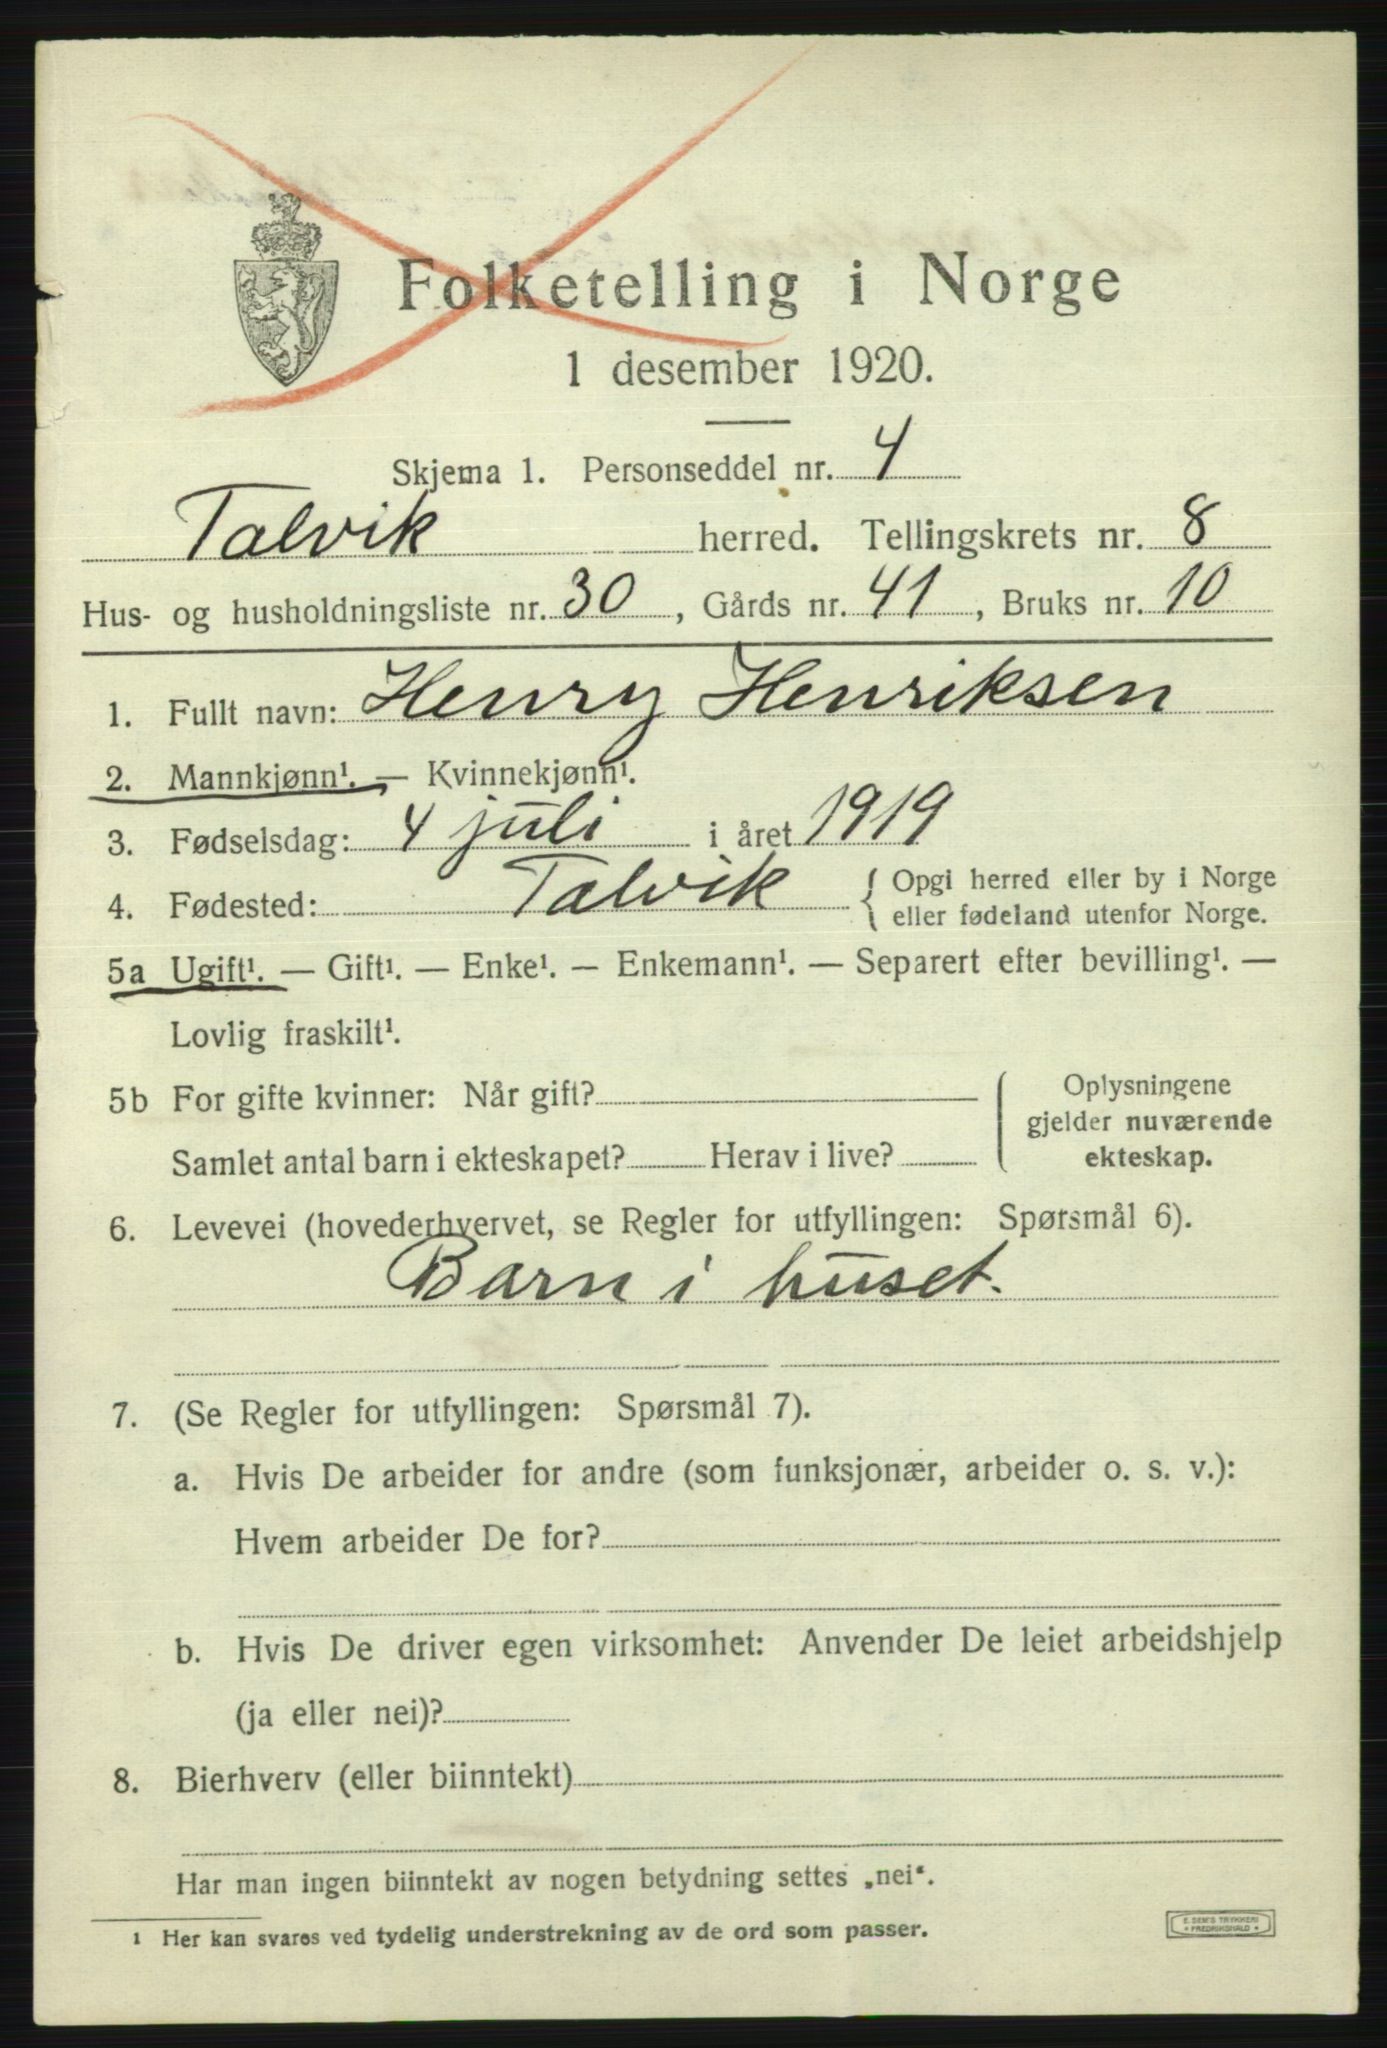 Folketelling i Norge
1 desember 1920.
Skjema 1. Personseddel nr. 4
Talvik herred. Tellingskrets nr. 8
Hus- og husholdningsliste nr. 30, Gårds nr. 41, Bruks nr. 10
1. Fullt navn: Henry Henriksen
2. Mannkjønn¹. — Kvinnekjønn¹.
3. Fødselsdag: 4 juli i året 1919
4. Fødested: Talvik { Opgi herred eller by i Norge
eller fødeland utenfor Norge.
5a Ugift¹. — Gift¹. — Enke¹. — Enkemann¹. — Separert efter bevilling¹. —
Lovlig fraskilt¹.
5b For gifte kvinner: Når gift?
Samlet antal barn i ekteskapet? Herav i live?
Oplysningene
gjelder nuværende
ekteskap.
6. Levevei (hovederhvervet, se Regler for utfyllingen: Spørsmål 6).
Barn i huset.
7. (Se Regler for utfyllingen: Spørsmål 7).
a. Hvis De arbeider for andre (som funksjonær, arbeider o. s. v.):
Hvem arbeider De for?
b. Hvis De driver egen virksomhet: Anvender De leiet arbeidshjelp
(ja eller nei)?
8. Bierhverv (eller biinntekt)
Har man ingen biinntekt av nogen betydning settes „nei“.
1 Her kan svares ved tydelig understrekning av de ord som passer.
E. SEM'S TRYKKERI
* FREDRIKSHALD *